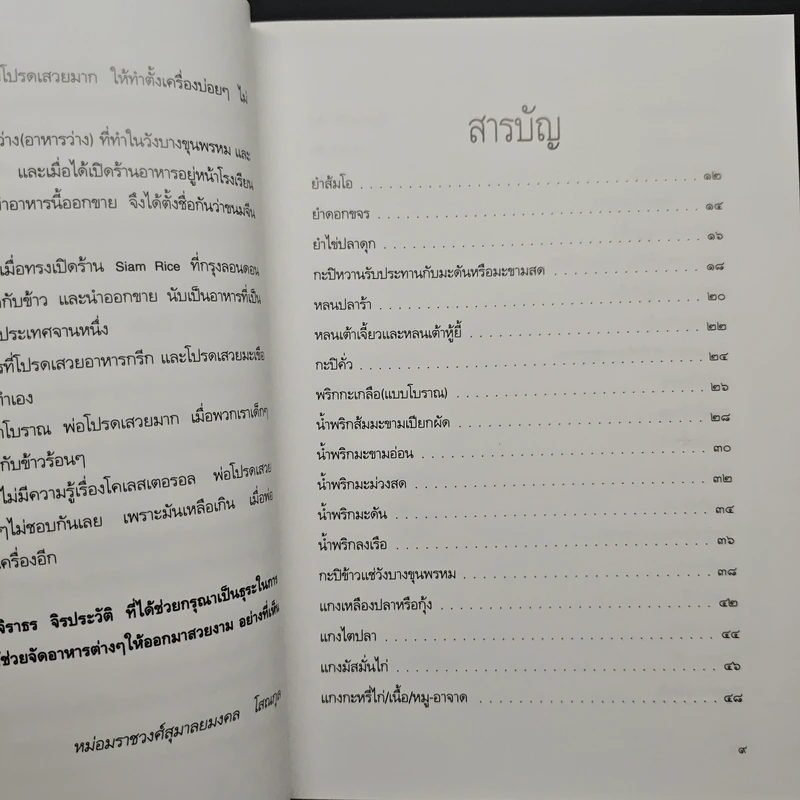 โปรดเสวยมาก ให้ทำตั้งเครื่องบ่อยๆ ไม่
ว่าง(อาหารว่าง) ที่ทำในวังบางขุนพรหม และ
และเมื่อได้เปิดร้านอาหารอยู่หน้าโรงเรียน
อาหารนี้ออกขาย จึงได้ตั้งชื่อกันว่าขนมจีน
เมื่อทรงเปิดร้าน Siam Rice ที่กรุงลอนดอน
กับข้าว และนำออกขาย นับเป็นอาหารที่เป็น
ประเทศจานหนึ่ง
ที่โปรดเสวยอาหารกรีก และโปรดเสวยมะเขือ
ทำเอง
โบราณ พ่อโปรดเสวยมาก เมื่อพวกเราเด็กๆ
กับข้าวร้อนๆ
ไม่มีความรู้เรื่องโคเลสเตอรอล พ่อโปรดเสวย
ๆไม่ชอบกันเลย เพราะมันเหลือเกิน เมื่อพ่อ
เครื่องอีก
จิราธร จิรประวัติ ที่ได้ช่วยกรุณาเป็นธุระในการ
ช่วยจัดอาหารต่างๆให้ออกมาสวยงาม อย่างที่เห็น
หม่อมราชวงศ์สุมาลยมงคล โสณกุล
สารบัญ
ยำส้มโอ ๑๒
ยำดอกขจร ๑๔
ยำไข่ปลาดุก ๑๖
กะปิหวานรับประทานกับมะดันหรือมะขามสด ๑๘
หลนปลาร้า ๒๐
หลนเต้าเจี้ยวและหลนเต้าหู้ยี้ ๒๒
กะปิคั่ว ๒๔
พริกกะเกลือ(แบบโบราณ) ๒๖
น้ำพริกส้มมะขามเปียกผัด ๒๘
น้ำพริกมะขามอ่อน ๓๐
น้ำพริกมะม่วงสด ๓๒
น้ำพริกมะดัน ๓๔
น้ำพริกลงเรือ ๓๖
กะปิข้าวแช่วังบางขุนพรหม ๓๘
แกงเหลืองปลาหรือกุ้ง ๔๒
แกงไตปลา ๔๔
แกงมัสมั่นไก่ ๔๖
แกงกะหรี่ไก่/เนื้อ/หมู-อาจาด ๔๘
๙